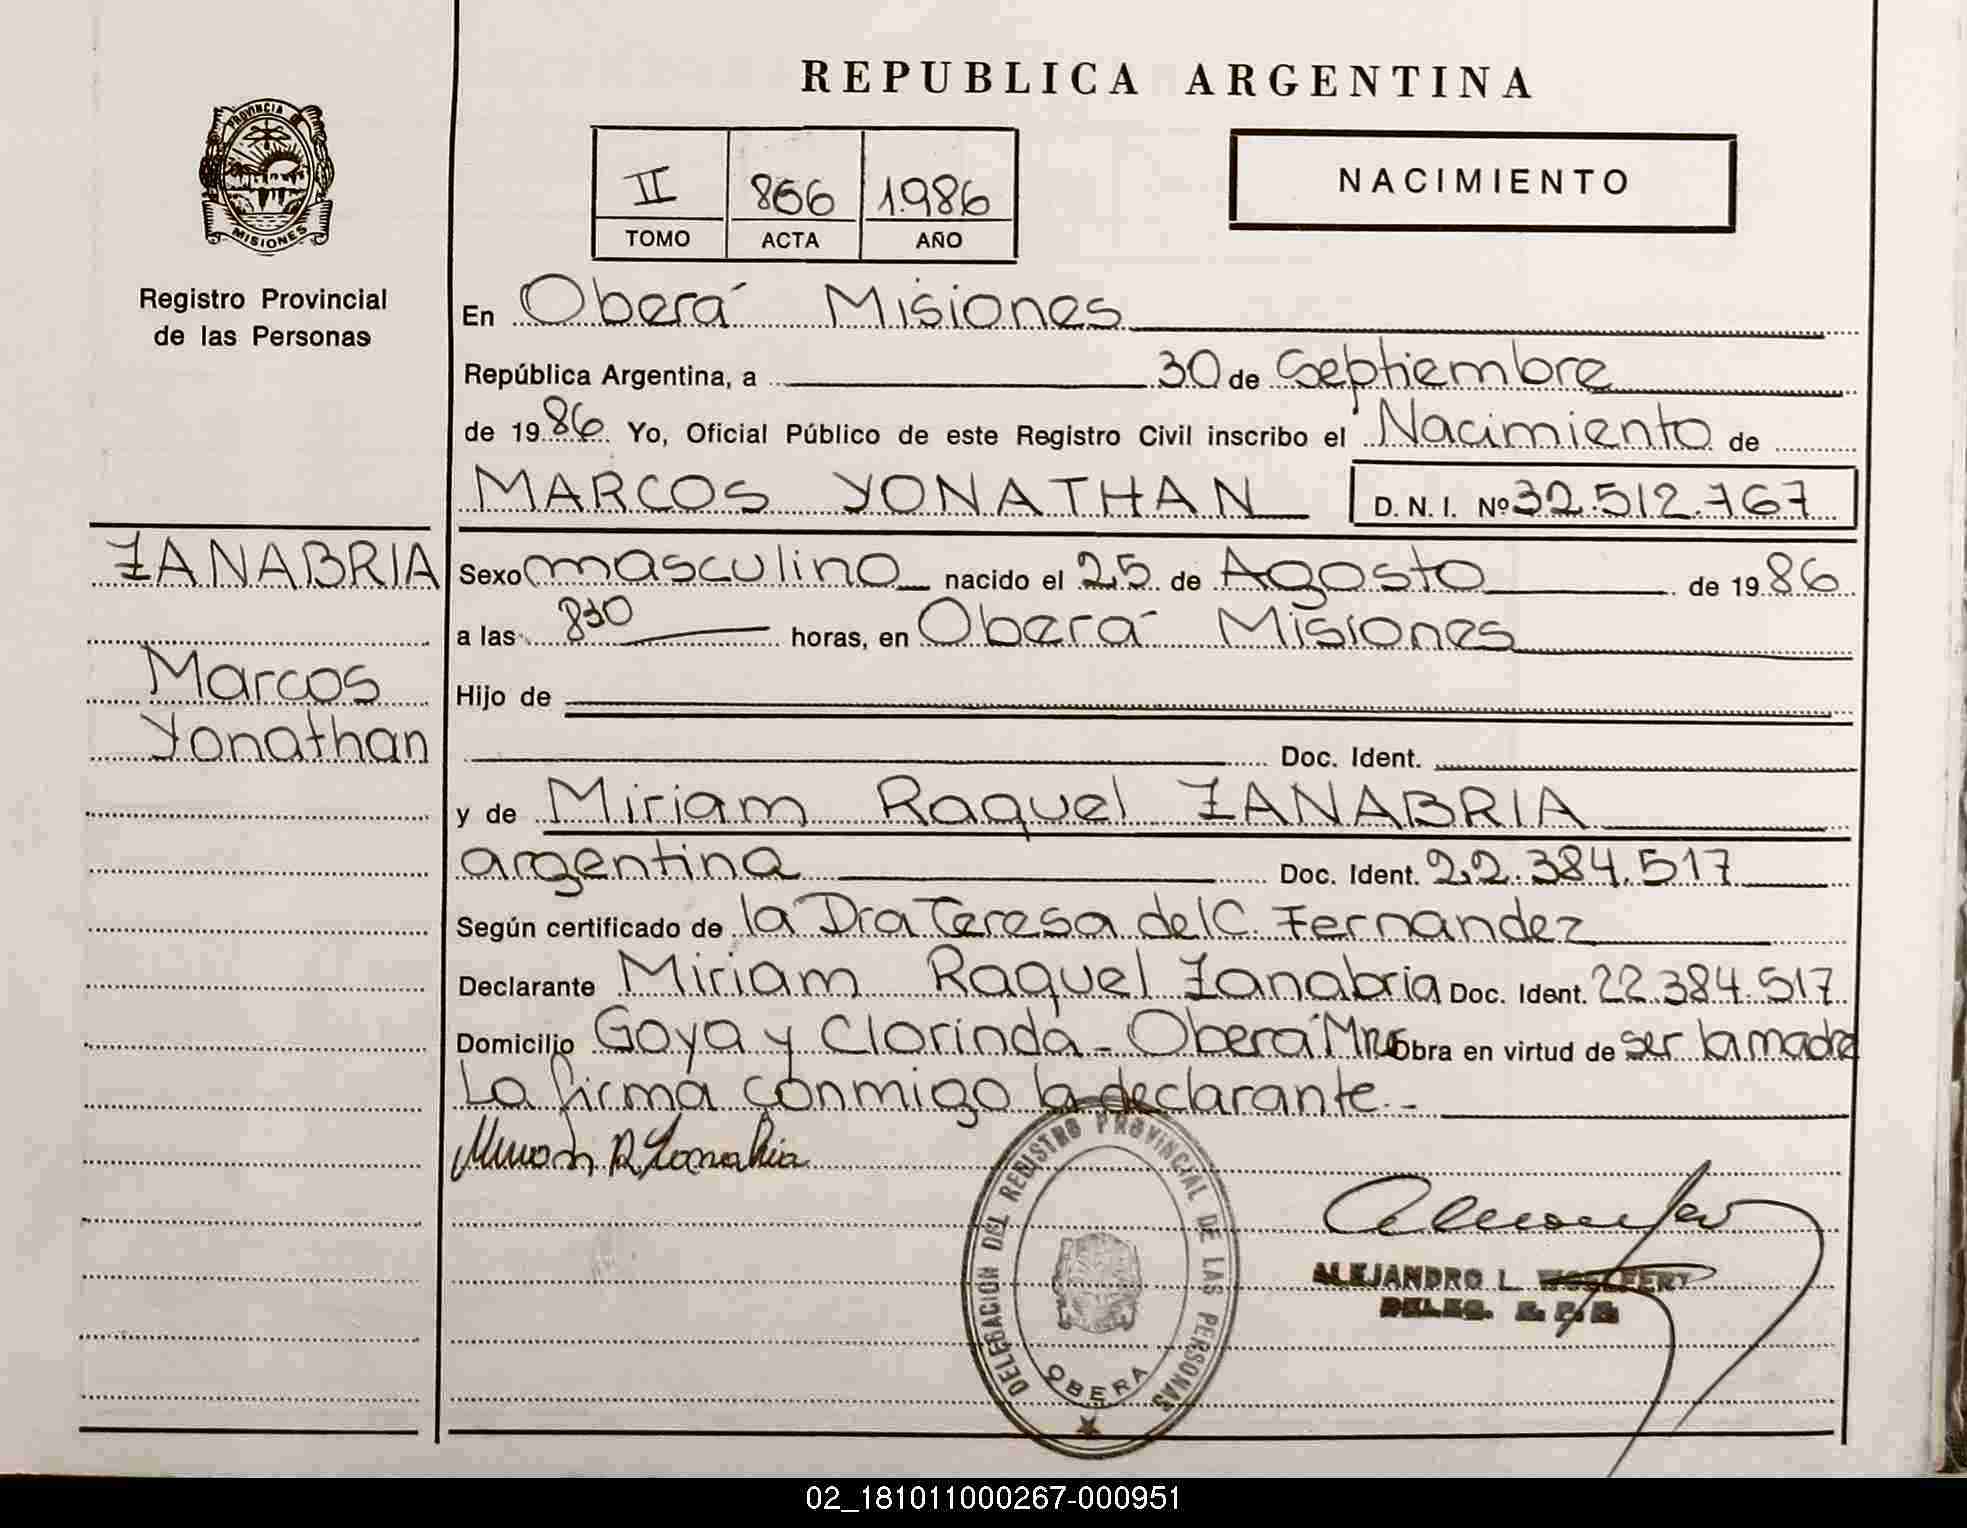 REPUBLICA ARGENTINA
PROVINCIA DE
MISIONES
Registro Provincial
de las Personas
II 866 1.986
TOMO ACTA AÑO
NACIMIENTO
En Oberá Misiones
República Argentina, a 30 de Septiembre
de 1986 Yo, Oficial Público de este Registro Civil inscribo el Nacimiento de
MARCOS YONATHAN D. N. I. Nº 32.512.767
ZANABRIA
Marcos
Yonathan
Sexo masculino nacido el 25 de Agosto de 1986
a las 830 horas, en Oberá Misiones
Hijo de
Doc. Ident.
y de Miriam Raquel ZANABRIA
argentina Doc. Ident. 22.384.517
Según certificado de la Dra Teresa del C. Fernandez
Declarante Miriam Raquel Zanabria Doc. Ident. 22.384.517
Domicilio Goya y Clorinda - Oberá Mnes Obra en virtud de ser la madre
La firma conmigo la declarante.-
Miriam R Zanabria
DELEGACION DEL REGISTRO PROVINCIAL DE LAS PERSONAS
OBERA
ALEJANDRO L.
DELEG.
02_181011000267-000951